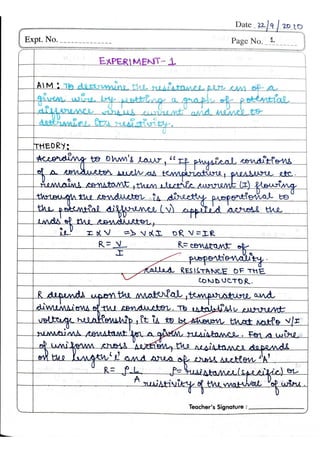 Date 22/9/2020
Expt. No.
Page No. 1.
EXPERIMENT-1
AIM: To determine the resistance per cm of a
given wire by plotting a graph of potential
difference versus current and hence to
determine its resistivity.
THEORY:
According to Ohm's Law, "If physical conditions
of a conductor such as temperature, pressure etc.
remains constant, then electric current (I) flowing
through the conductor is directly proportional to
the potential difference (V) applied across the
ends of the conductor,
ie I ∝ V => V ∝ I OR V = IR
R = V/I R = constant of
proportionality.
called RESISTANCE OF THE
CONDUCTOR.
R depends upon the material, temperature and
dimensions of the conductor. To establish current
voltage relationship, it is to be shown that ratio V/I
remains constant for a given resistance. For a wire
of uniform cross section, the resistance depends
on the length 'l' and area of cross section 'A'
R = ρ L/A ρ = resistance (specific) or
resistivity of the material of wire.
Teacher's Signature :